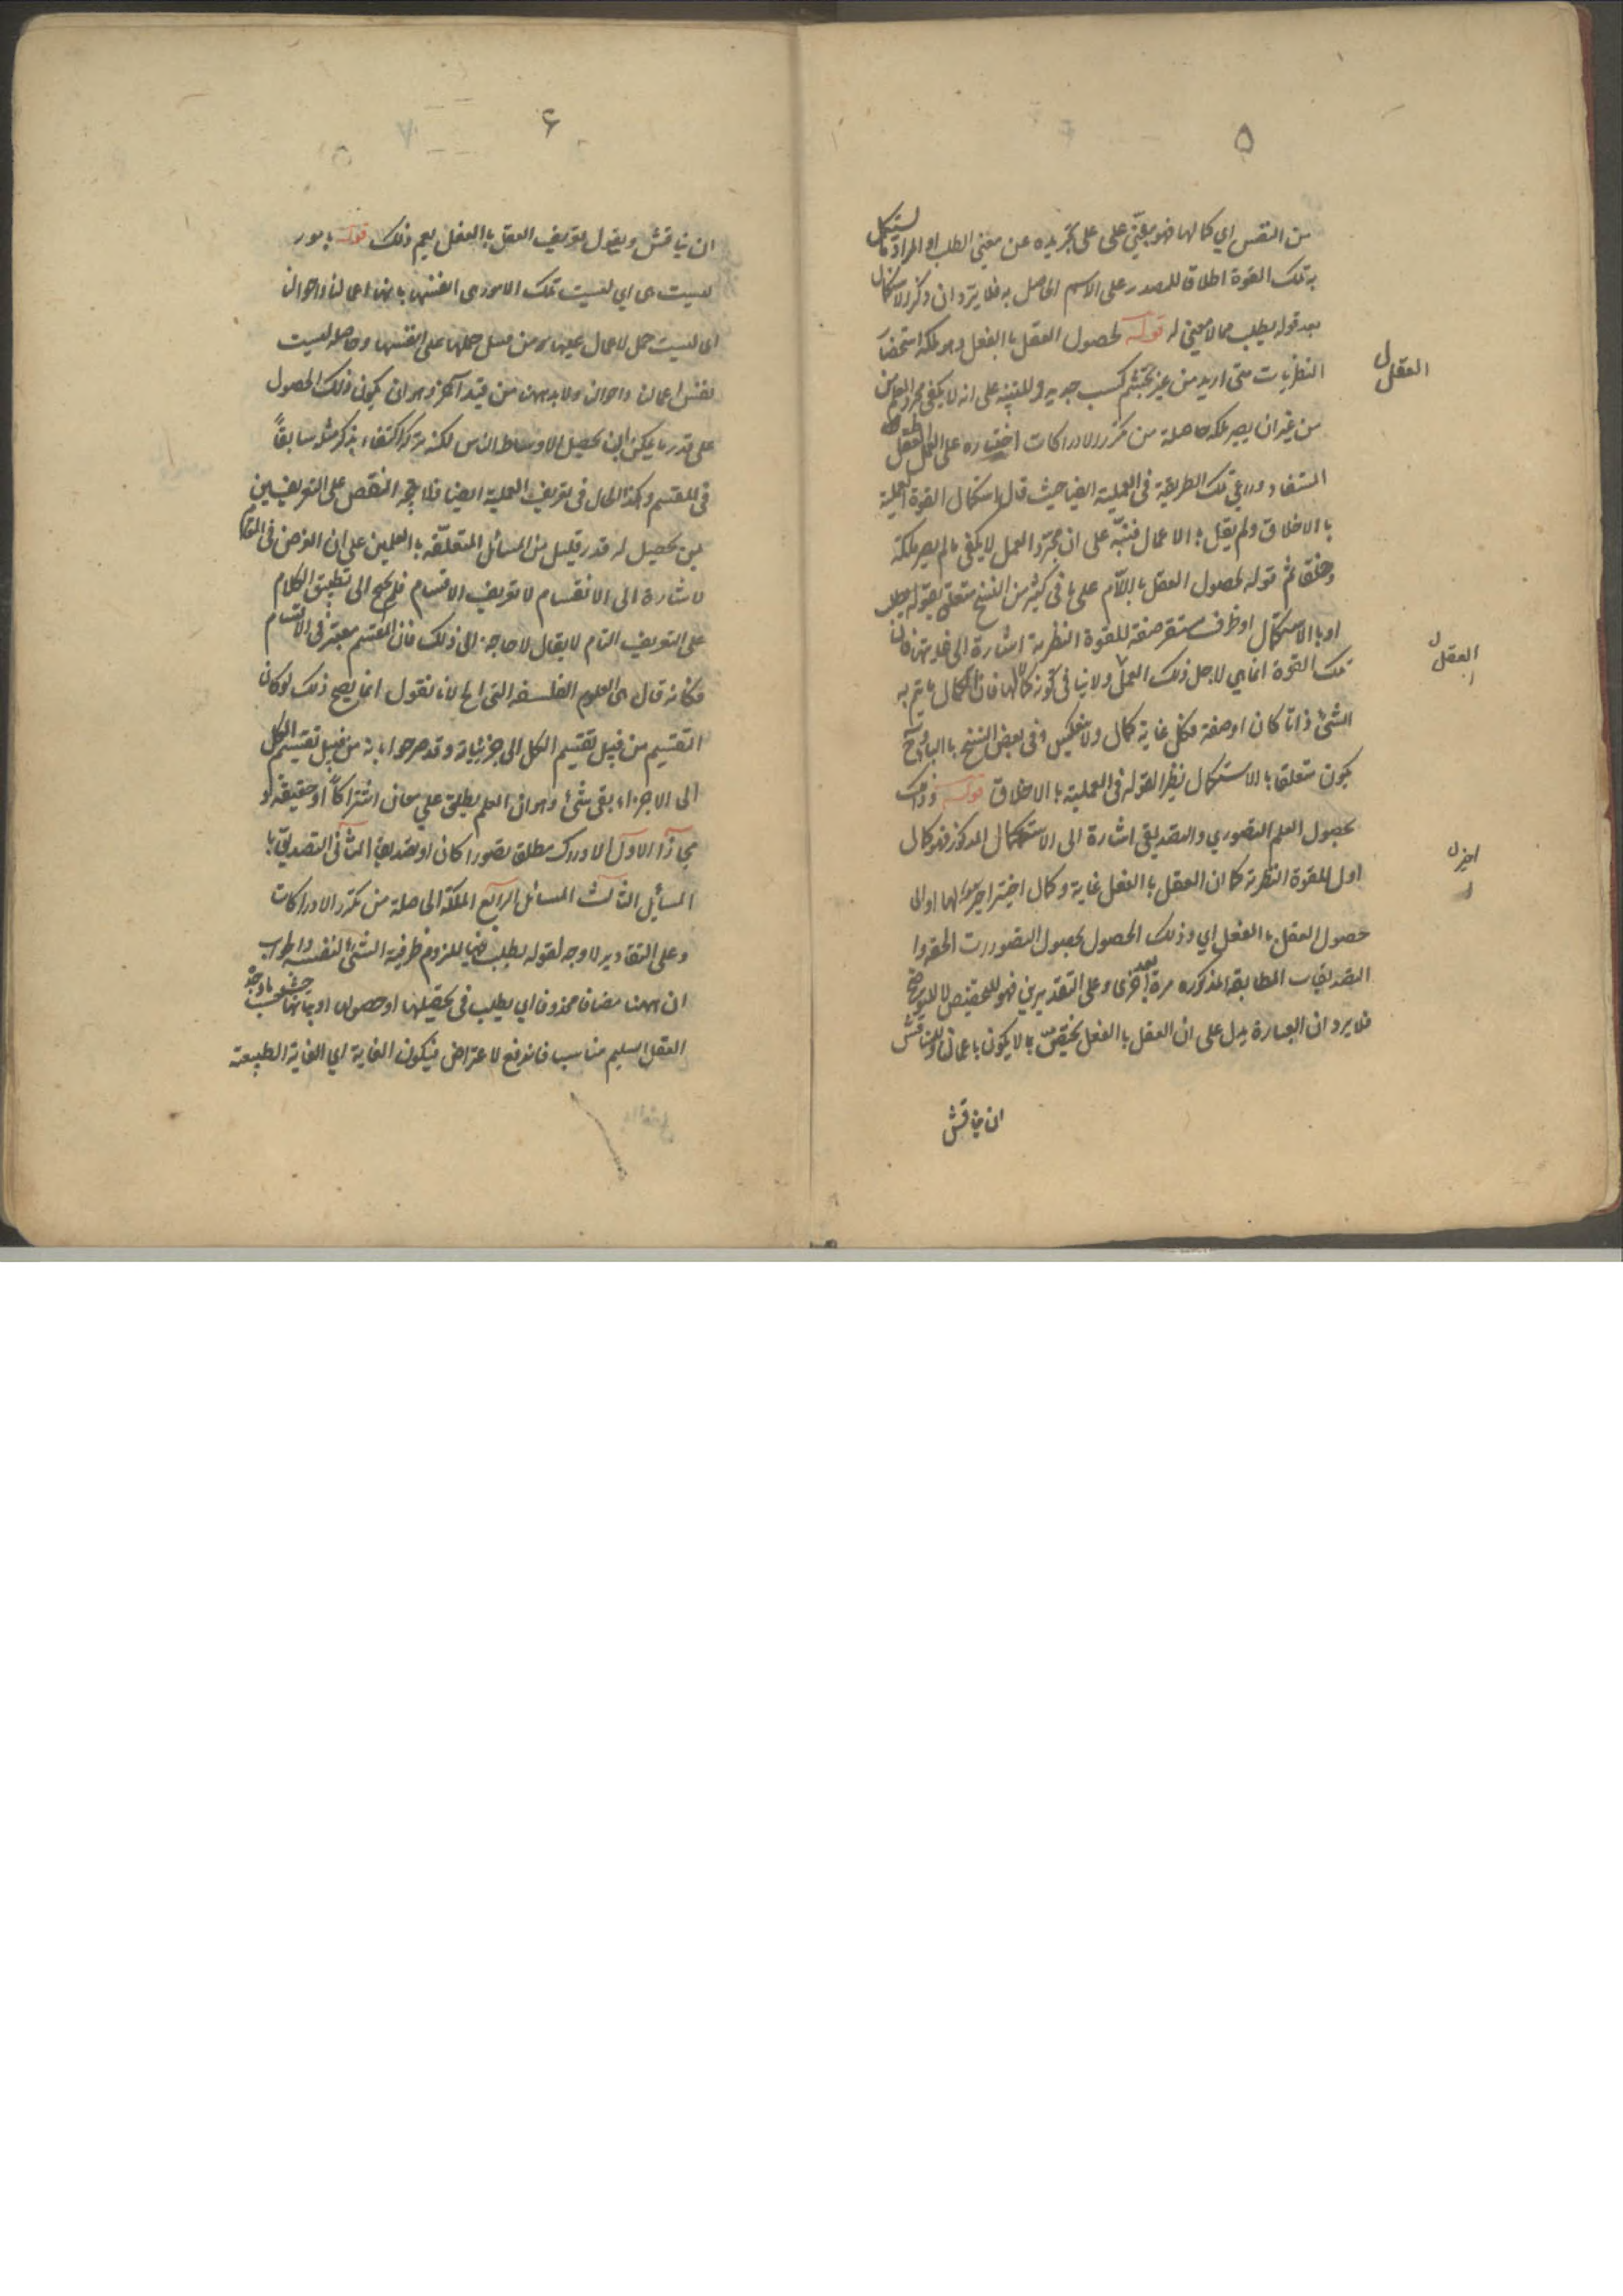 ٥
من النفس اي كمالها فهو مبني على على تجريده عن معنى الطلب او المراد ما يستكمل
به تلك القوة اطلاقا للمصدر على الاسم الحاصل به فلا يرد ان ذكر الاستكمال
بعد قوله يطلب مما لا معنى له قوله لحصول العقل بالفعل وهو ملكة استحضار
النظريات متى اريد من غير تجشم كسب جديد وللتنبيه على انه لا يكفي مجرد العلم
من غير ان يصير ملكة حاصلة من تكرر الادراكات اختاره على العقل
المستفاد وروعي تلك الطريقة في العملية ايضا حيث قال استكمال القوة العملية
بالاخلاق ولم يقل بالاعمال فنبّه على ان مجرّد العمل لا يكفي ما لم يصر ملكة
وخلقا ثم قوله لحصول العقل باللام على ما في كثير من النسخ متعلق بقوله يطلب
او بالاستكمال او ظرف مستقر صفة للقوة النظرية اشارة الى غايتها فان
تلك القوة انما هي لاجل ذلك العمل ولا ينافي كونه كمالها فان الكمال ما يتم به
الشئ ذاتا كان او صفة فكل غاية كمال ولا عكس وفي بعض النسخ بالباء وح
يكون متعلقا بالاستكمال نظير القوله في العملية بالاخلاق قوله وذلك
بحصول العلم التصوري والتصديقي اشارة الى الاستكمال المذكور فهو كمال
اول للقوة النظرية كما ان العقل بالفعل غاية وكمال اخير لها او الى
حصول العقل بالفعل اي وذلك الحصول بحصول التصورات الحقة او
التصديقات المطابقة المذكورة مرة بعد اخرى وعلى التقديرين فهو للتخصيص لا للتوضيح
فلا يرد ان العبارة يدل على ان العقل بالفعل يختص بما لا يكون باعمالنا وللمناقش
ان يناقش
العقل
العقل
اخير
٦
ان يناقش ويقول تعريف العقل بالفعل يعم ذلك قوله بامور
ليست هي اي ليست تلك الامور هي انفسها بانها اعمالنا واحوالنا
اي ليست حمل الاعمال عليها من قبيل حملها على انفسها وحاصله ليست
نفس اعمالنا واحوالنا ولابد ههنا من قيد آخر وهو ان يكون ذلك الحصول
على قدر ما يمكن ان يحصل لاوساط الناس لكنه تركه اكتفاء بذكر مثله سابقاً
في المقسم وكذا الحال في تعريف العملية ايضا فلا يتجه النقض على التعريفين
بمن يحصل له قدر قليل من المسائل المتعلقة بالعلمين على ان الغرض في المقام
الاشارة الى الانقسام لا تعريف الاقسام فلا يحتاج الى تطبيق الكلام
على التعريف التام لا يقال لا حاجة الى ذلك فان المقسم معتبر في الاقسام
فكانه قال هي العلوم الفلسفة التي الخ لانا نقول انما يصح ذلك لو كان
التقسيم من قبيل تقسيم الكل الى جزئياته وقد صرحوا بانه من قبيل تقسيم الكل
الى الاجزاء بقي شئ وهو ان العلم يطلق على معان اشتراكاً او حقيقة او
مجازا الاول الادراك مطلقا تصورا كان او تصديقا الثاني التصديق با
المسائل الثالث المسائل الرابع الملكة الحاصلة من تكرر الادراكات
وعلى التقادير لا وجه لقوله يطلب فيها للزوم ظرفية الشئ لنفسه والجواب
ان ههنا مضافا محذوفا اي يطلب في تحصيلها او حصولها او بيانها
العقل السليم مناسب فاندفع الاعتراض فيكون الغاية اي الغاية الطبيعة